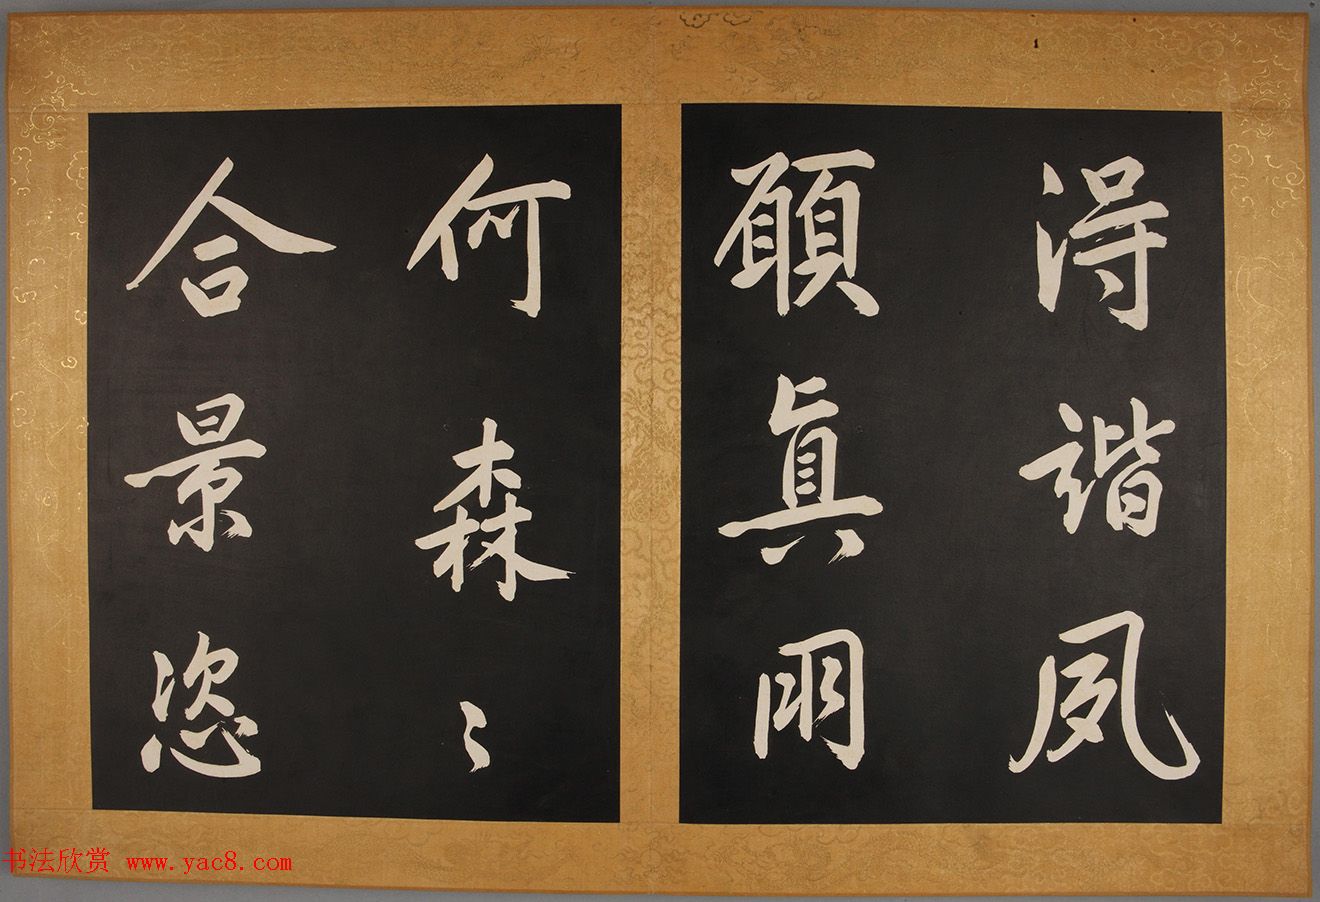 得諧夙
願真朋
何森〻
合景恣
书法欣赏 www.yac8.com